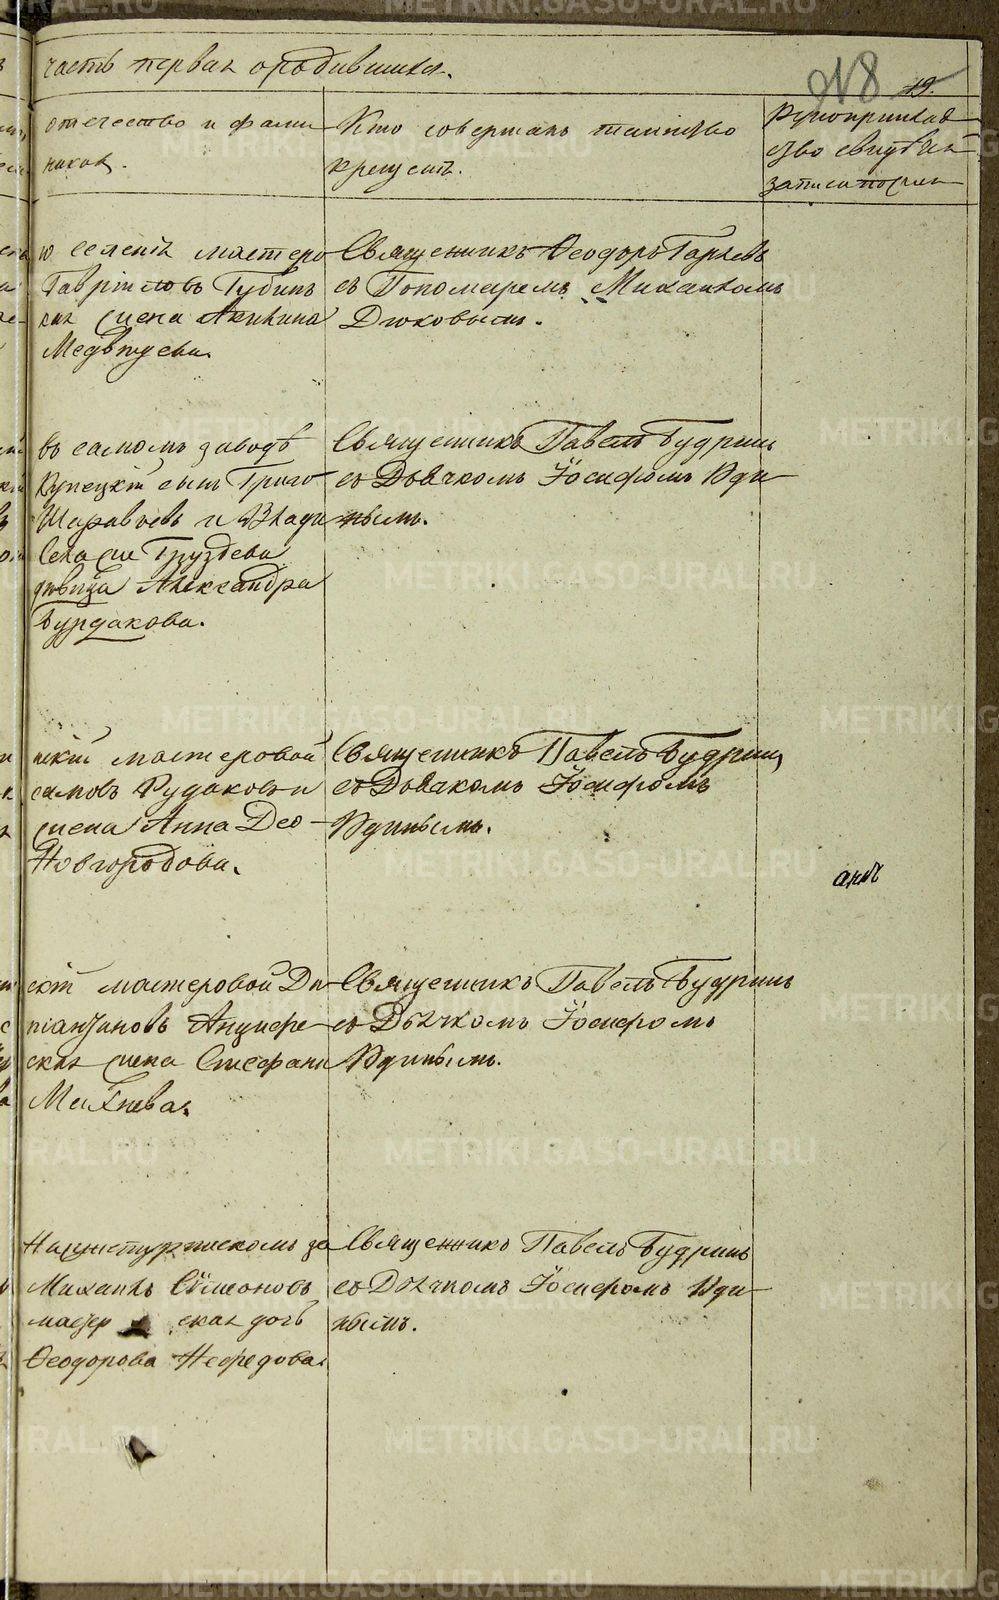 часть первая о родившихся.
№8 19.
отечество и фами-
Кто совершалъ таинство
крещенія.
Рукоприклад
ство свидѣте
записи по
ю селенія мастеро
Гаврiиловъ Губинъ
кая жена Акилина
Медвѣдева.
Священникъ Ѳеодоръ Гаряевъ
съ Пономаремъ Михаиломъ
Дюковымъ.
въ самомъ заводѣ
Купецкiй сынъ Григо
Шаравьевъ и Влади
Села Груздева
дѣвица Александра
Бурдакова.
Священникъ Павелъ Будринъ
съ Дьячкомъ Іосифомъ Уди-
нымъ.
скiй мастеровой
самовъ Рудаковъ и
жена Анна Део-
Новгородова.
Священникъ Павелъ Будринъ
съ Дьячкомъ Іосифомъ
Удинымъ.
скiй мастеровой Ди-
Анцифе-
ская жена Стефани
Махнева.
Священникъ Павелъ Будринъ
съ Дьячкомъ Іосифомъ
Удинымъ.
Нацистурпинскомъ за
Михаилъ Сѷмеоновъ
мастер ская дочь
Ѳеодорова Нефедова.
Священникъ Павелъ Будринъ
съ Дьячкомъ Іосифомъ Уди-
нымъ.
METRIKI.GASO-URAL.RU